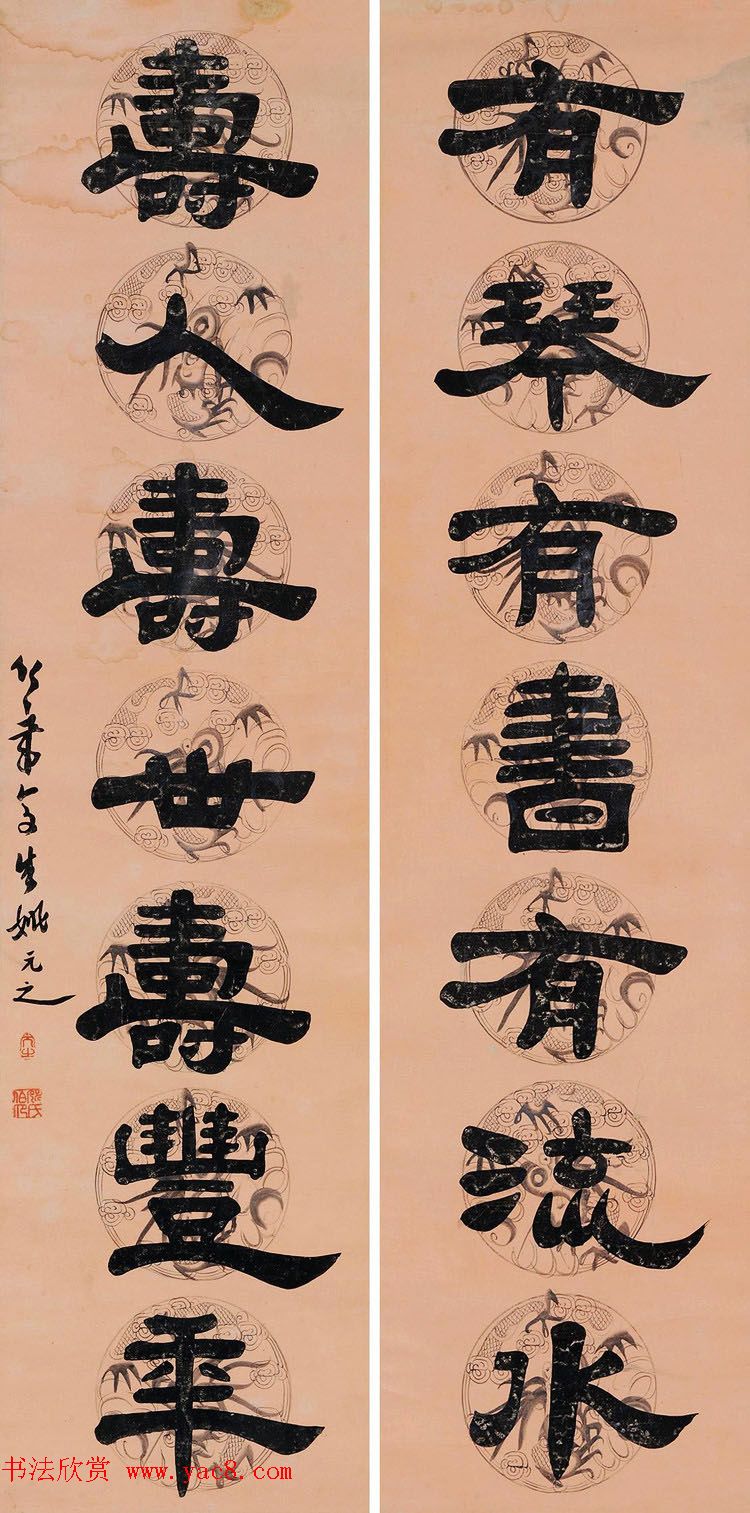 有琴有書有流水
壽人壽世壽豐年
竹葉亭生姚元之
书法欣赏 www.yac8.com